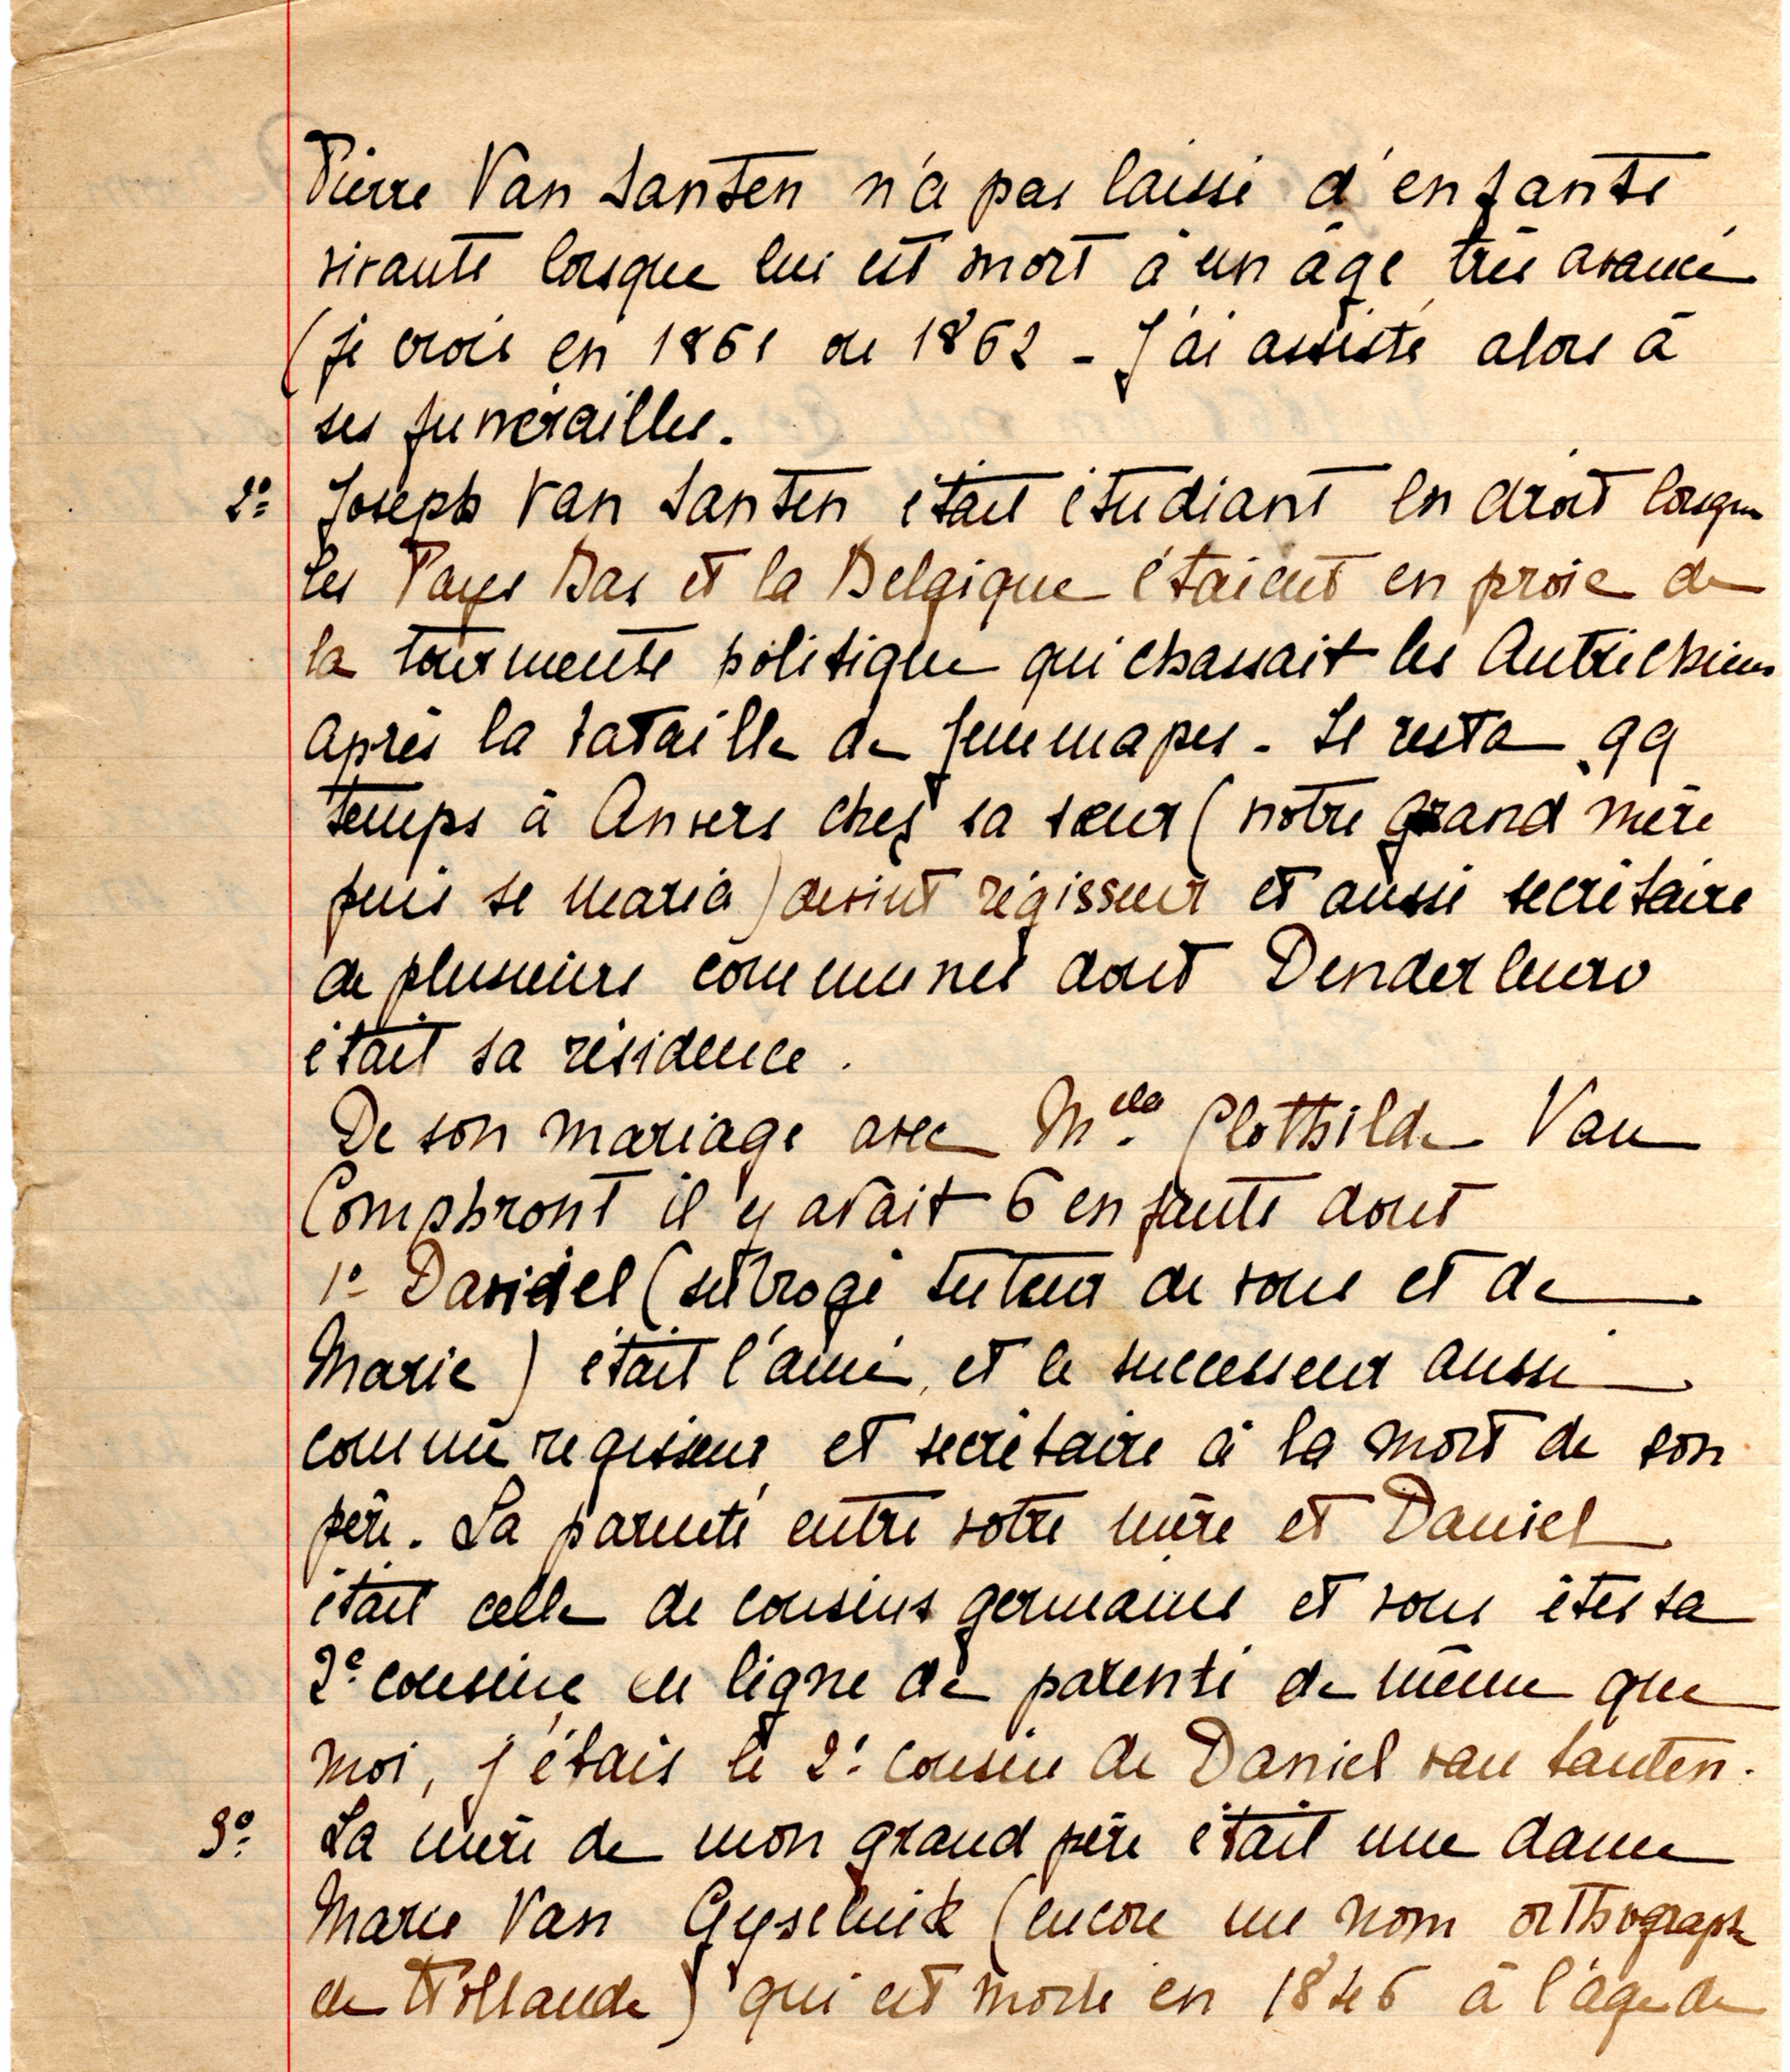 Pierre Van Santen n'a pas laissé d'enfants
vivants lorsque lui est mort à un âge très avancé
(je crois en 1861 ou 1862 - J'ai assisté alors à
ses funérailles.
2º Joseph Van Santen était étudiant en droit lorsque
les Pays Bas et la Belgique étaient en proie de
la tourmente politique qui chassait les Autrichiens
après la bataille de Jemmapes - Il resta qq
temps à Anvers chez sa sœur (notre grand mère
puis se maria) devint régisseur et aussi secrétaire
de plusieurs communes dont Denderleeuw
était sa résidence.
De son mariage avec Mlle Clothilde Van
il y avait 6 enfants dont
1º Daniel (subrogé tuteur de vous et de
Marie) était l'aîné, et le successeur aussi
comme regisseur et secrétaire à la mort de son
père. La parenté entre votre mère et Daniel
était celle de cousins germains et vous êtes sa
2e cousine en ligne de parenté de même que
moi, j'étais le 2e cousin de Daniel van Santen.
3º La mère de mon grand père était une dame
Marie Van (encore un nom orthographe
de Hollande) qui est morte en 1846 à l'âge de